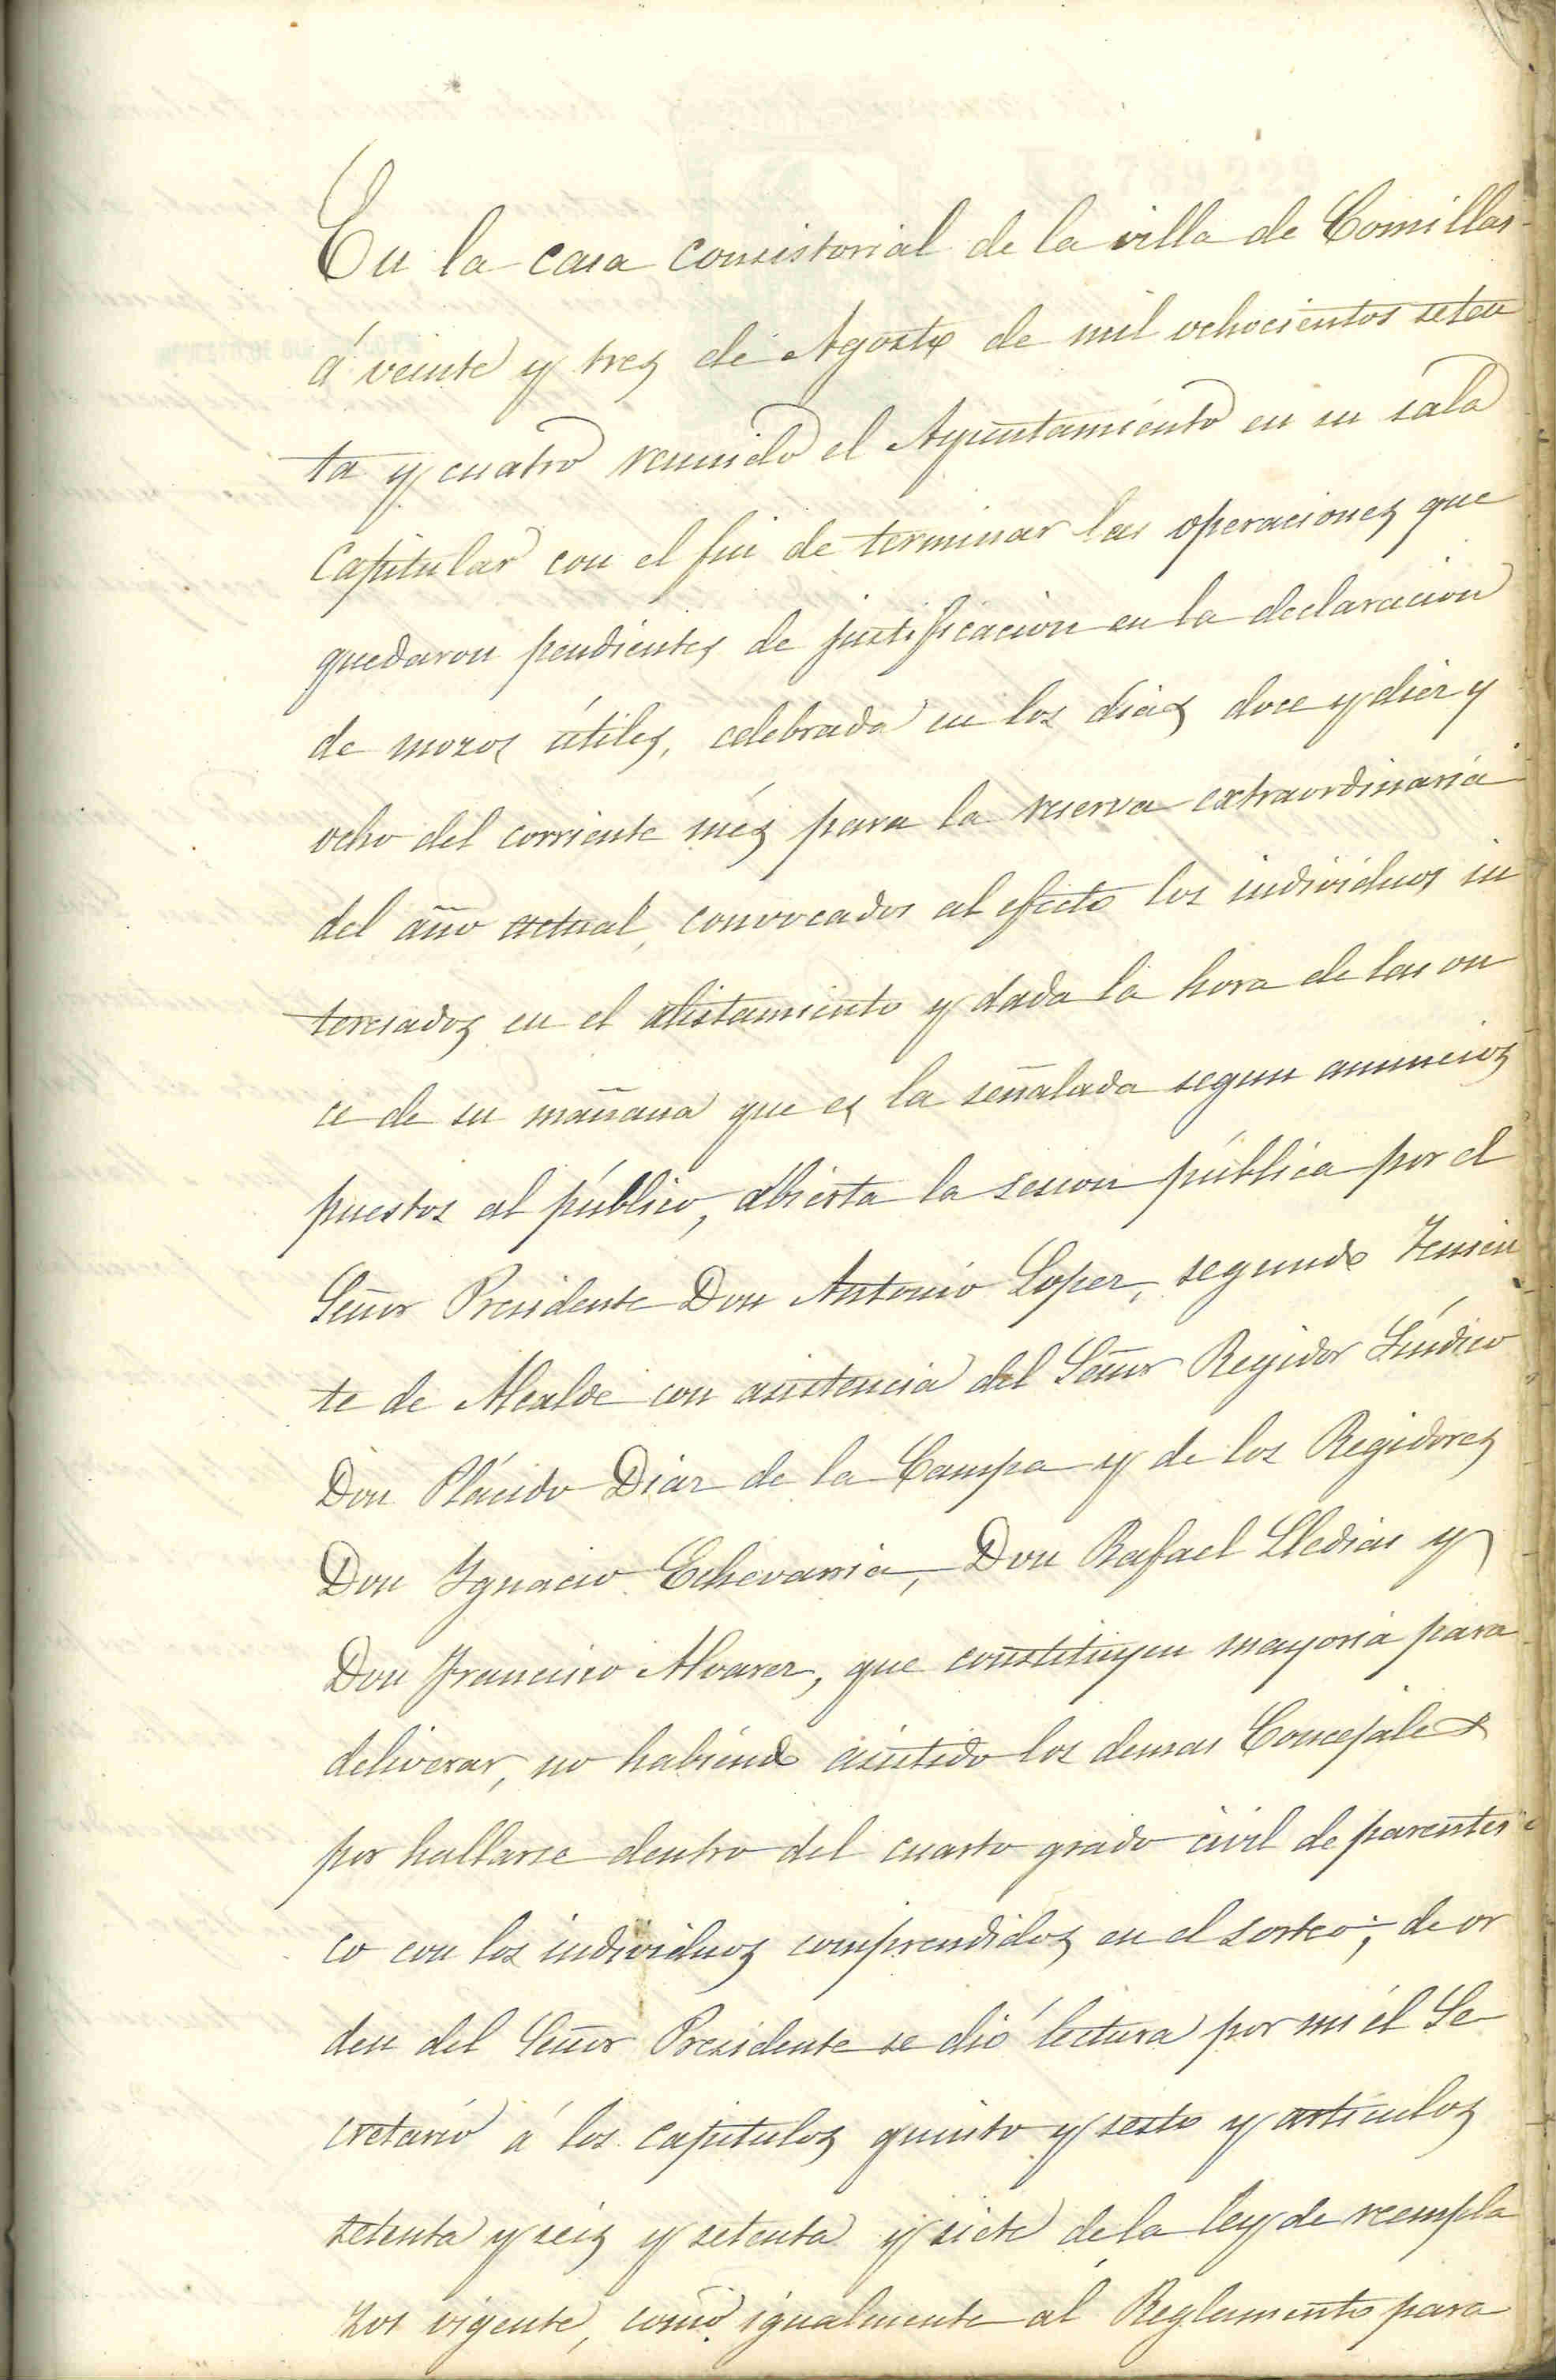 En la casa consistorial de la villa de Comillas
á veinte y tres de Agosto de mil ochocientos seten
ta y cuatro reunido el Ayuntamiento en su sala
Capitular con el fin de terminar las operaciones que
quedaron pendientes de justificacion en la declaracion
de mozos útiles, celebrada en los dias doce y diez y
ocho del corriente més para la reserva extraordinaria
del año actual, convocados al efecto los individuos in
teresados en el alistamiento y dada la hora de las on
ce de su mañana que es la señalada segun anuncios
puestos al público, abierta la sesion pública por el
Señor Presidente Don Antonio Lopez, segundo Tenien
te de Alcalde con asistencia del Señor Regidor Síndico
Don Plácido Diaz de la Campa y de los Regidores
Don Ygnacio Echevarria, Don Rafael Lledias y
Don Francisco Alvarez, que constituyen mayoria para
deliverar, no habiendo asistido los demas Concejales
por hallarse dentro del cuarto grado civil de parentes
co con los individuos comprendidos en el sorteo; de or
den del Señor Presidente se dió lectura por mi él Se
cretario á los capitulos quinto y sesto y artículos
setenta y seis y setenta y siete de la ley de reempla
zos vigente, como igualmente al Reglamento para